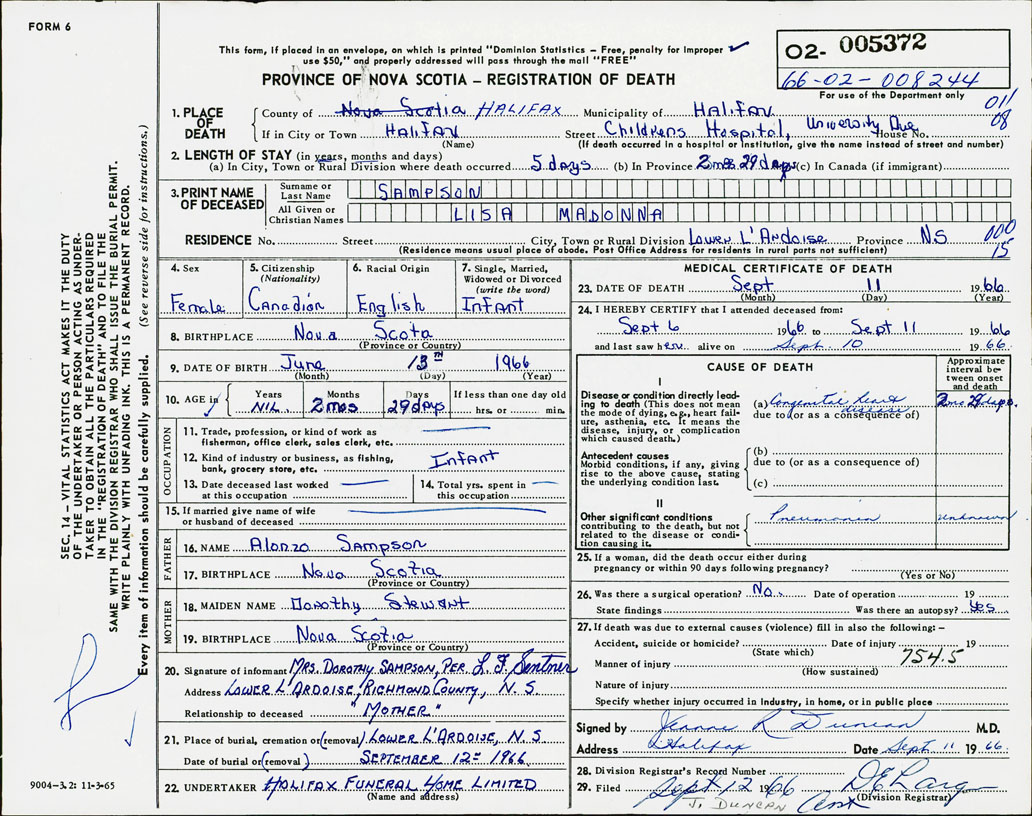 FORM 6
This form, if placed in an envelope, on which is printed "Dominion Statistics – Free, penalty for improper
use $50," and properly addressed will pass through the mail "FREE"
PROVINCE OF NOVA SCOTIA – REGISTRATION OF DEATH
02- 005372
66-02-008244
For use of the Department only
011
08
1. PLACE OF DEATH
County of Nova Scotia HALIFAX Municipality of Halifax
If in City or Town Halifax Street Childrens Hospital, University Ave House No.
(Name) (If death occurred in a hospital or institution, give the name instead of street and number)
2. LENGTH OF STAY (in years, months and days)
(a) In City, Town or Rural Division where death occurred 5 days (b) In Province 2 mos 29 days (c) In Canada (if immigrant)
3. PRINT NAME OF DECEASED
Surname or Last Name SAMPSON
All Given or Christian Names LISA MADONNA
RESIDENCE No. Street City, Town or Rural Division Lower L'Ardoise Province N.S
(Residence means usual place of abode. Post Office Address for residents in rural parts not sufficient)
000
15
4. Sex
Female
5. Citizenship
(Nationality)
Canadian
6. Racial Origin
English
7. Single, Married,
Widowed or Divorced
(write the word)
Infant
8. BIRTHPLACE Nova Scota
(Province or Country)
9. DATE OF BIRTH June 13TH 1966
(Month) (Day) (Year)
10. AGE in
Years NIL
Months 2 mos
Days 29 days
If less than one day old
hrs. or min.
OCCUPATION
11. Trade, profession, or kind of work as
fisherman, office clerk, sales clerk, etc.
12. Kind of industry or business, as fishing,
bank, grocery store, etc. Infant
13. Date deceased last worked
at this occupation
14. Total yrs. spent in
this occupation
15. If married give name of wife
or husband of deceased
FATHER
16. NAME Alonzo Sampson
17. BIRTHPLACE Nova Scotia
(Province or Country)
MOTHER
18. MAIDEN NAME Dorothy Stewart
19. BIRTHPLACE Nova Scotia
(Province or Country)
20. Signature of informant MRS. DOROTHY SAMPSON, PER. L. F. Sentner
Address LOWER L'ARDOISE, RICHMOND COUNTY, N. S.
Relationship to deceased "MOTHER"
21. Place of burial, cremation or (removal) LOWER L'ARDOISE, N. S
Date of burial or (removal) SEPTEMBER 12 1966
22. UNDERTAKER HALIFAX FUNERAL HOME LIMITED
(Name and address)
MEDICAL CERTIFICATE OF DEATH
23. DATE OF DEATH Sept 11 1966
(Month) (Day) (Year)
24. I HEREBY CERTIFY that I attended deceased from:
Sept 6 1966 to Sept 11 1966
and last saw her alive on Sept. 10 1966.
CAUSE OF DEATH
Approximate
interval be-
tween onset
and death
I
Disease or condition directly lead-
ing to death (This does not mean
the mode of dying, e.g., heart fail-
ure, asthenia, etc. It means the
disease, injury, or complication
which caused death.)
(a) Congenital heart disease 2 mos 29 days.
due to (or as a consequence of)
Antecedent causes
Morbid conditions, if any, giving
rise to the above cause, stating
the underlying condition last.
(b)
due to (or as a consequence of)
(c)
II
Other significant conditions
contributing to the death, but not
related to the disease or condi-
tion causing it.
Pneumonia unknown
25. If a woman, did the death occur either during
pregnancy or within 90 days following pregnancy?
(Yes or No)
26. Was there a surgical operation? No. Date of operation 19
State findings Was there an autopsy? Yes
27. If death was due to external causes (violence) fill in also the following: –
Accident, suicide or homicide? Date of injury 19
(State which)
754.5
Manner of injury
(How sustained)
Nature of injury
Specify whether injury occurred in industry, in home, or in public place
Signed by Jeanne R Duncan M.D.
Address Halifax Date Sept 11 1966.
28. Division Registrar's Record Number
29. Filed Sept 12 1966
(Division Registrar)
J. DUNCAN
SEC. 14 – VITAL STATISTICS ACT MAKES IT THE DUTY
OF THE UNDERTAKER OR PERSON ACTING AS UNDER-
TAKER TO OBTAIN ALL THE PARTICULARS REQUIRED
IN THE "REGISTRATION OF DEATH" AND TO FILE THE
SAME WITH THE DIVISION REGISTRAR WHO SHALL ISSUE THE BURIAL PERMIT.
WRITE PLAINLY WITH UNFADING INK. THIS IS A PERMANENT RECORD.
Every item of information should be carefully supplied. (See reverse side for instructions.)
9004–3.2: 11-3-65